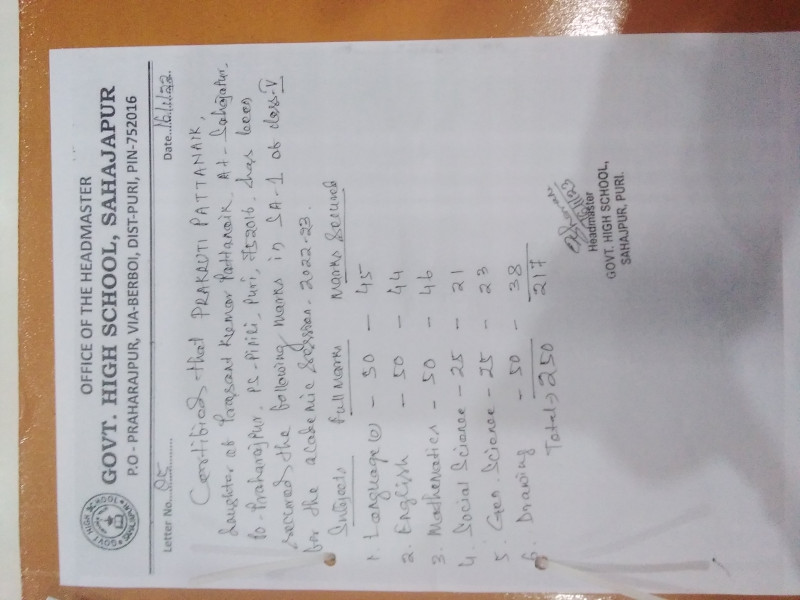 OFFICE OF THE HEADMASTER
GOVT. HIGH SCHOOL, SAHAJAPUR
P.O - PRAHARAJPUR, VIA-BERBOI, DIST-PURI, PIN-752016
Letter No. 95 Date. 16/11/22
Certified that PRAKRUTI PATTANAIK,
daughter of Prasant Kumar Pattanaik, At- Sahajapur,
Po-Praharajpur, PS-Pipili, Puri, 752016. has been
secured the following marks in SA-1 of class-V
for the academic session-2022-23.
Subjects Full Marks Marks Secured
1. Language (O) - 50 - 45
2. English - 50 - 44
3. Mathematics - 50 - 46
4. Social Science - 25 - 21
5. Gen. Science - 25 - 23
6. Drawing - 50 - 38
Total → 250 217
Headmaster
GOVT. HIGH SCHOOL,
SAHAJPUR, PURI.